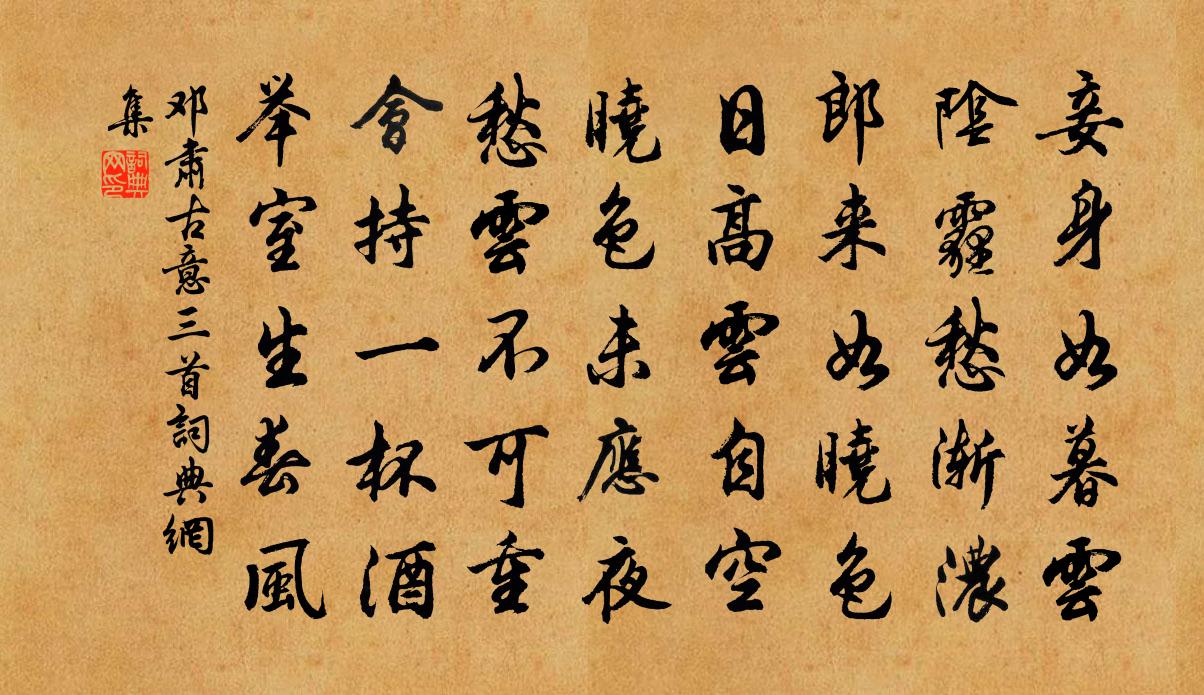 妾身如暮雲
陰霾愁漸濃
郎来如曉色
日高雲自空
曉色未應夜
愁雲不可重
會持一杯酒
举室生春風
邓肅古意三首詞典網
集
詞典
网印